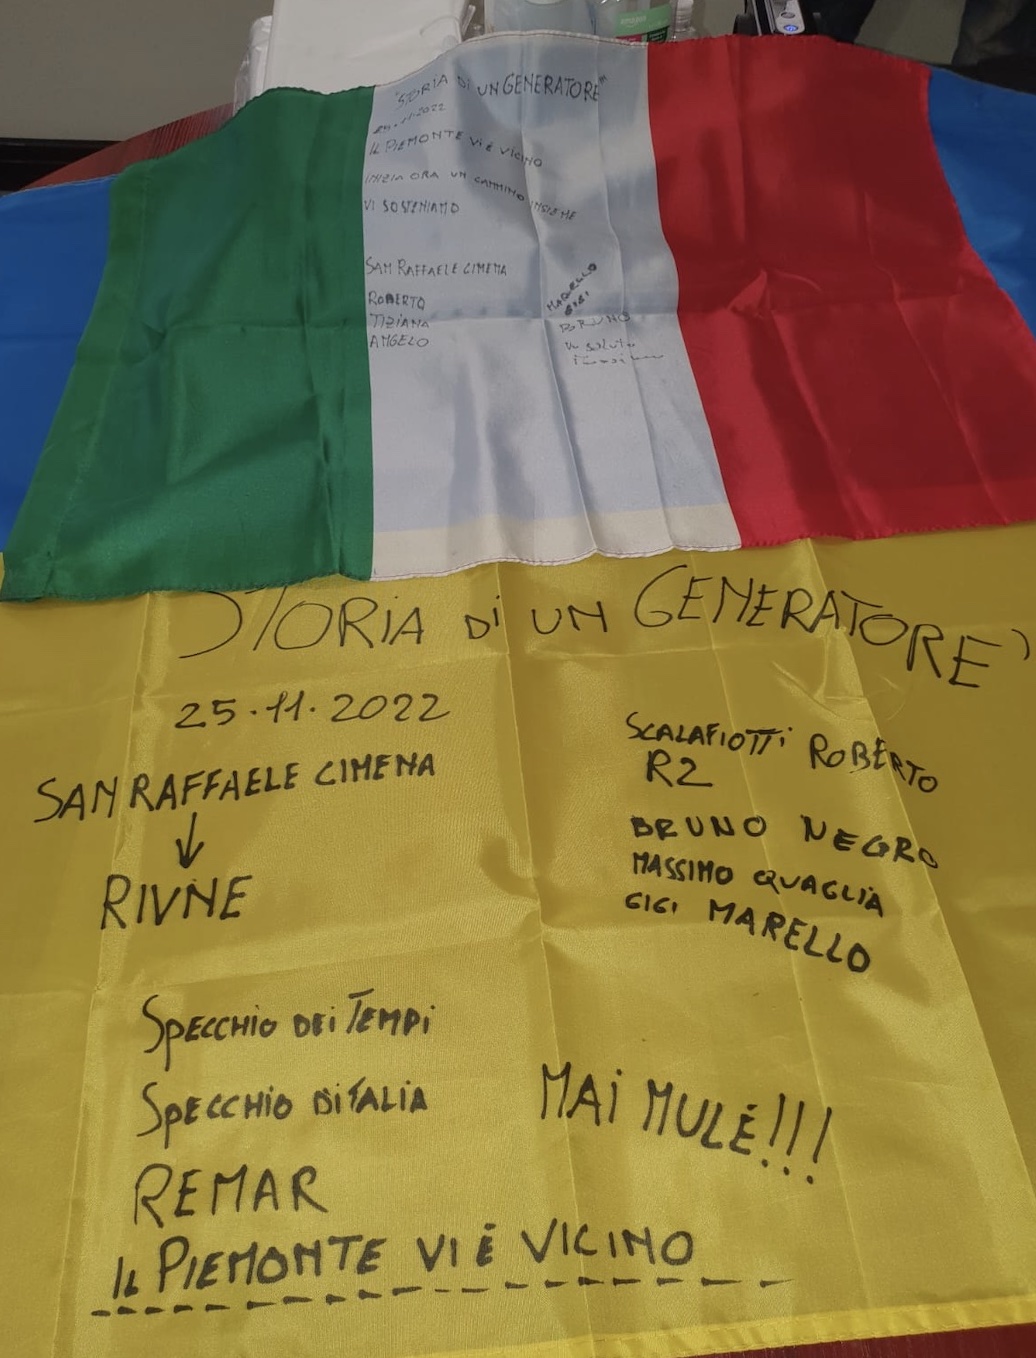 amazon
"STORIA DI UN GENERATORE"
25.11.2022
IL PIEMONTE VI È VICINO
INIZIA ORA UN CAMMINO INSIEME
VI SOSTENIAMO
SAN RAFFAELE CIMENA
ROBERTO
TIZIANA
ANGELO
MARELLO
GIGI
BRUNO
un saluto
STORIA Di UN GENERATORE"
25.11.2022
SAN RAFFAELE CIMENA
RIVNE
SCALAFIOTTi ROBERTO
R2
BRUNO NEGRO
MASSIMO QUAGLIA
GIGI MARELLO
SPECCHiO DEi TEMPi
SPECCHiO DiTALiA
REMAR
MAi MULÈ!!!
IL PIEMONTE VI È VICINO